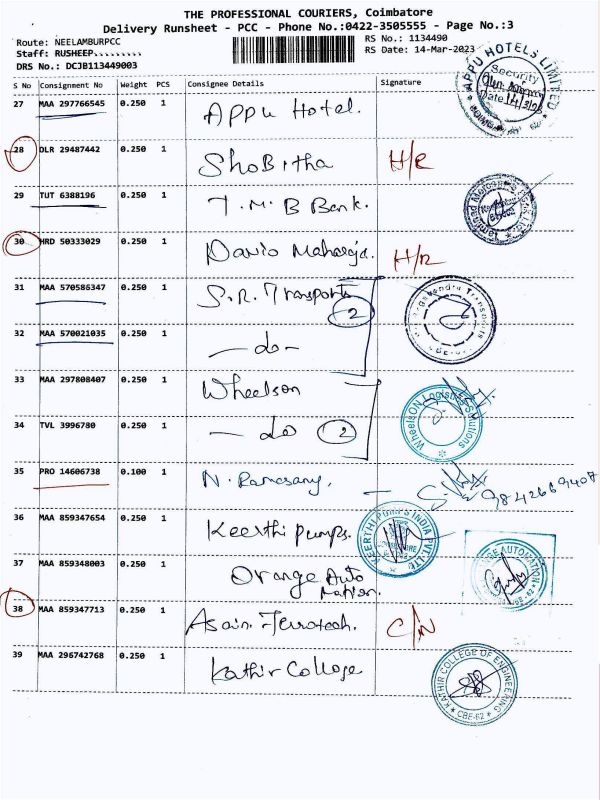 THE PROFESSIONAL COURIERS, Coimbatore
Delivery Runsheet - PCC - Phone No.:0422-3505555 - Page No.:3
Route: NEELAMBURPCC
RS No.: 1134490
Staff: RUSHEEP
RS Date: 14-Mar-2023
DRS No.: DCJB113449003
S No Consignment No Weight PCS Consignee Details Signature
27 MAA 297766545 0.250 1 Appu Hotel.
APPU HOTELS LIMITED
Security
Date
28 DLR 29487442 0.250 1 Shobitha H/R
29 TUT 6388196 0.250 1 T.M.B Bank.
30 HRD 50333029 0.250 1 Davio Maharaja. H/R
31 MAA 570586347 0.250 1 S.R. Transports
2
32 MAA 570021035 0.250 1 - do -
33 MAA 297808407 0.250 1 Wheelson
WheelsON Logistics Solutions
34 TVL 3996780 0.250 1 - do 2
35 PRO 14606738 0.100 1 N. Ramasany. - 9842669407
36 MAA 859347654 0.250 1 Keerthi pumps.
KEERTHI PUMPS INDIA PVT LTD
37 MAA 859348003 0.250 1 Orange Auto
Mation.
AUTOMATION
38 MAA 859347713 0.250 1 Asain. C/N
39 MAA 296742768 0.250 1 Kathir College
KATHIR COLLEGE OF ENGINEERING
CBE-62